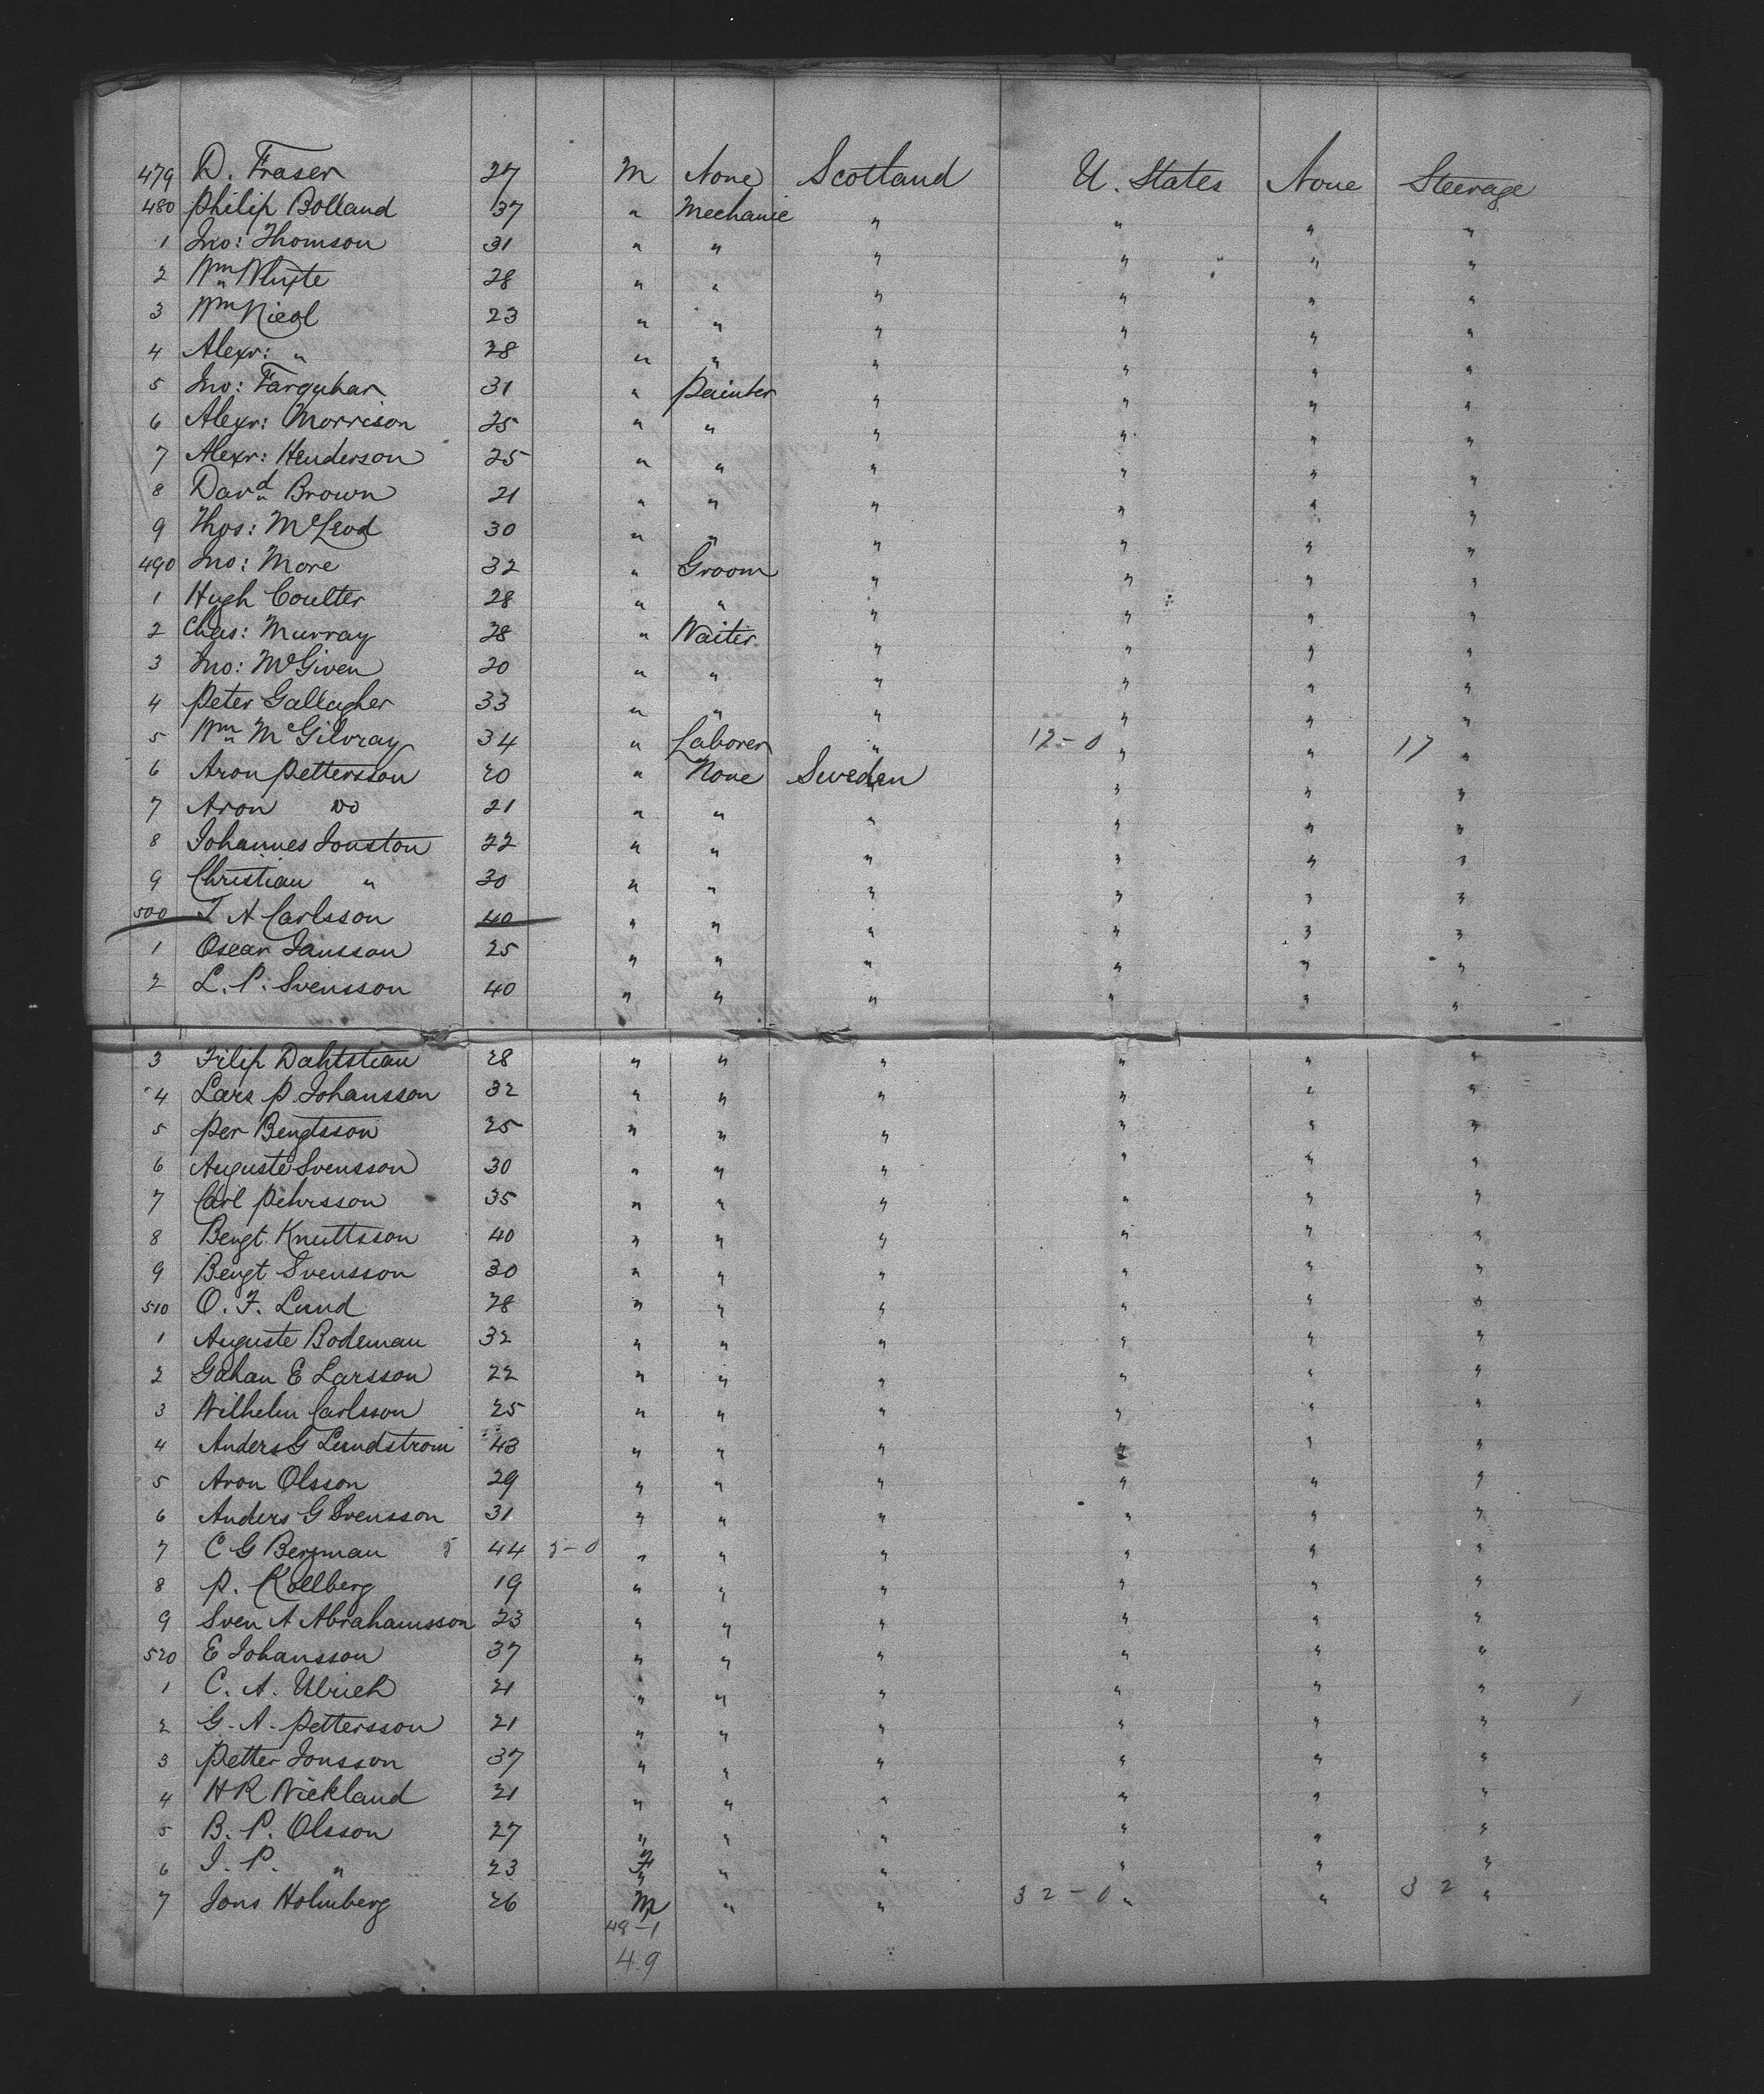 479 D. Fraser 27 M None Scotland U. States None Steerage
480 Philip Bolland 37 " Mechanic " " " "
1 Jno: Thomson 31 " " " " " "
2 Wm Whyte 28 " " " " " "
3 Wm Nicol 23 " " " " " "
4 Alexr: " 28 " " " " " "
5 Jno: Farquhar 31 " Painter " " " "
6 Alexr: Morrison 25 " " " " " "
7 Alexr: Henderson 25 " " " " " "
8 Davd Brown 21 " " " " " "
9 Thos: McLeod 30 " " " " " "
490 Jno: More 32 " Groom " " " "
1 Hugh Coulter 28 " " " " " "
2 Chas: Murray 28 " Waiter " " " "
3 Jno: McGiven 20 " " " " " "
4 Peter Gallagher 33 " " " " " "
5 Wm McGilvray 34 " Laborer " 17-0 " " 17 "
6 Aron Pettersson 20 " None Sweden " " "
7 Aron do 21 " " " " " "
8 Johannes Jonston 22 " " " " " "
9 Christian " 30 " " " " " "
500 J A Carlsson 40 " " " " " "
1 Oscar Jansson 25 " " " " " "
2 L. P. Svensson 40 " " " " " "
3 Filip Dahtstean 28 " " " " " "
4 Lars P. Johansson 32 " " " " " "
5 Per Bengtsson 25 " " " " " "
6 Auguste Svensson 30 " " " " " "
7 Carl Pehrsson 35 " " " " " "
8 Bengt Knuttsson 40 " " " " " "
9 Bengt Svensson 30 " " " " " "
510 O. F. Lund 28 " " " " " "
1 Auguste Bodeman 32 " " " " " "
2 Gahan E Larsson 22 " " " " " "
3 Wilhelm Carlsson 25 " " " " " "
4 Anders G Lundstrom 43 " " " " " "
5 Aron Olsson 29 " " " " " "
6 Anders G Svensson 31 " " " " " "
7 C G Bergman 5 44 5-0 " " " " " "
8 P. Kollberg 19 " " " " " "
9 Sven A Abrahamsson 23 " " " " " "
520 E Johansson 37 " " " " " "
1 C. A. Ulrich 21 " " " " " "
2 G. A. Pettersson 21 " " " " " "
3 Petter Jonsson 37 " " " " " "
4 H R Wickland 21 " " " " " "
5 B. P. Olsson 27 " " " " " "
6 J. P. " 23 F " " " " "
7 Jons Holmberg 26 M " " 32-0 " " 32 "
48-1
49